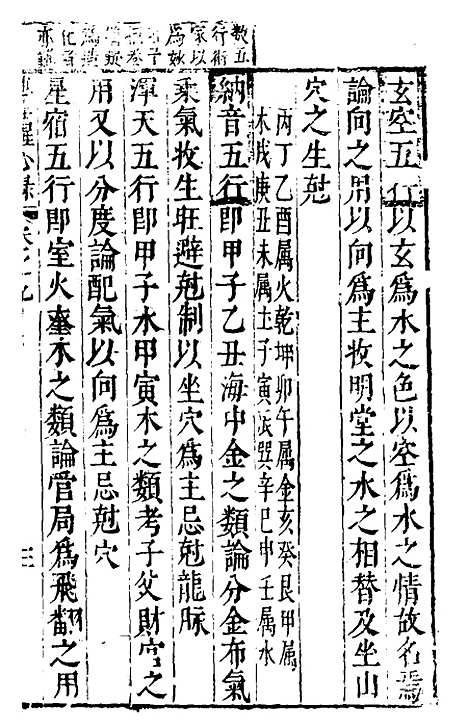 數五
行術
家以
玄空五行以玄爲水之色以空爲水之情故名焉
論向之用以向爲主收明堂之水之相替及坐山
穴之生尅
丙丁乙酉属火乾坤卯午属金亥癸艮甲属
木戌庚丑未属土子寅辰巽辛巳申壬属水
納音五行即甲子乙丑海中金之類論分金布氣
乘氣收生旺避尅制以坐穴爲主忌尅龍脉
渾天五行即甲子水甲寅木之類考子父財官之
用又以分度論配氣以向爲主忌尅穴
星宿五行即室火奎木之類論管局爲飛翻之用
三